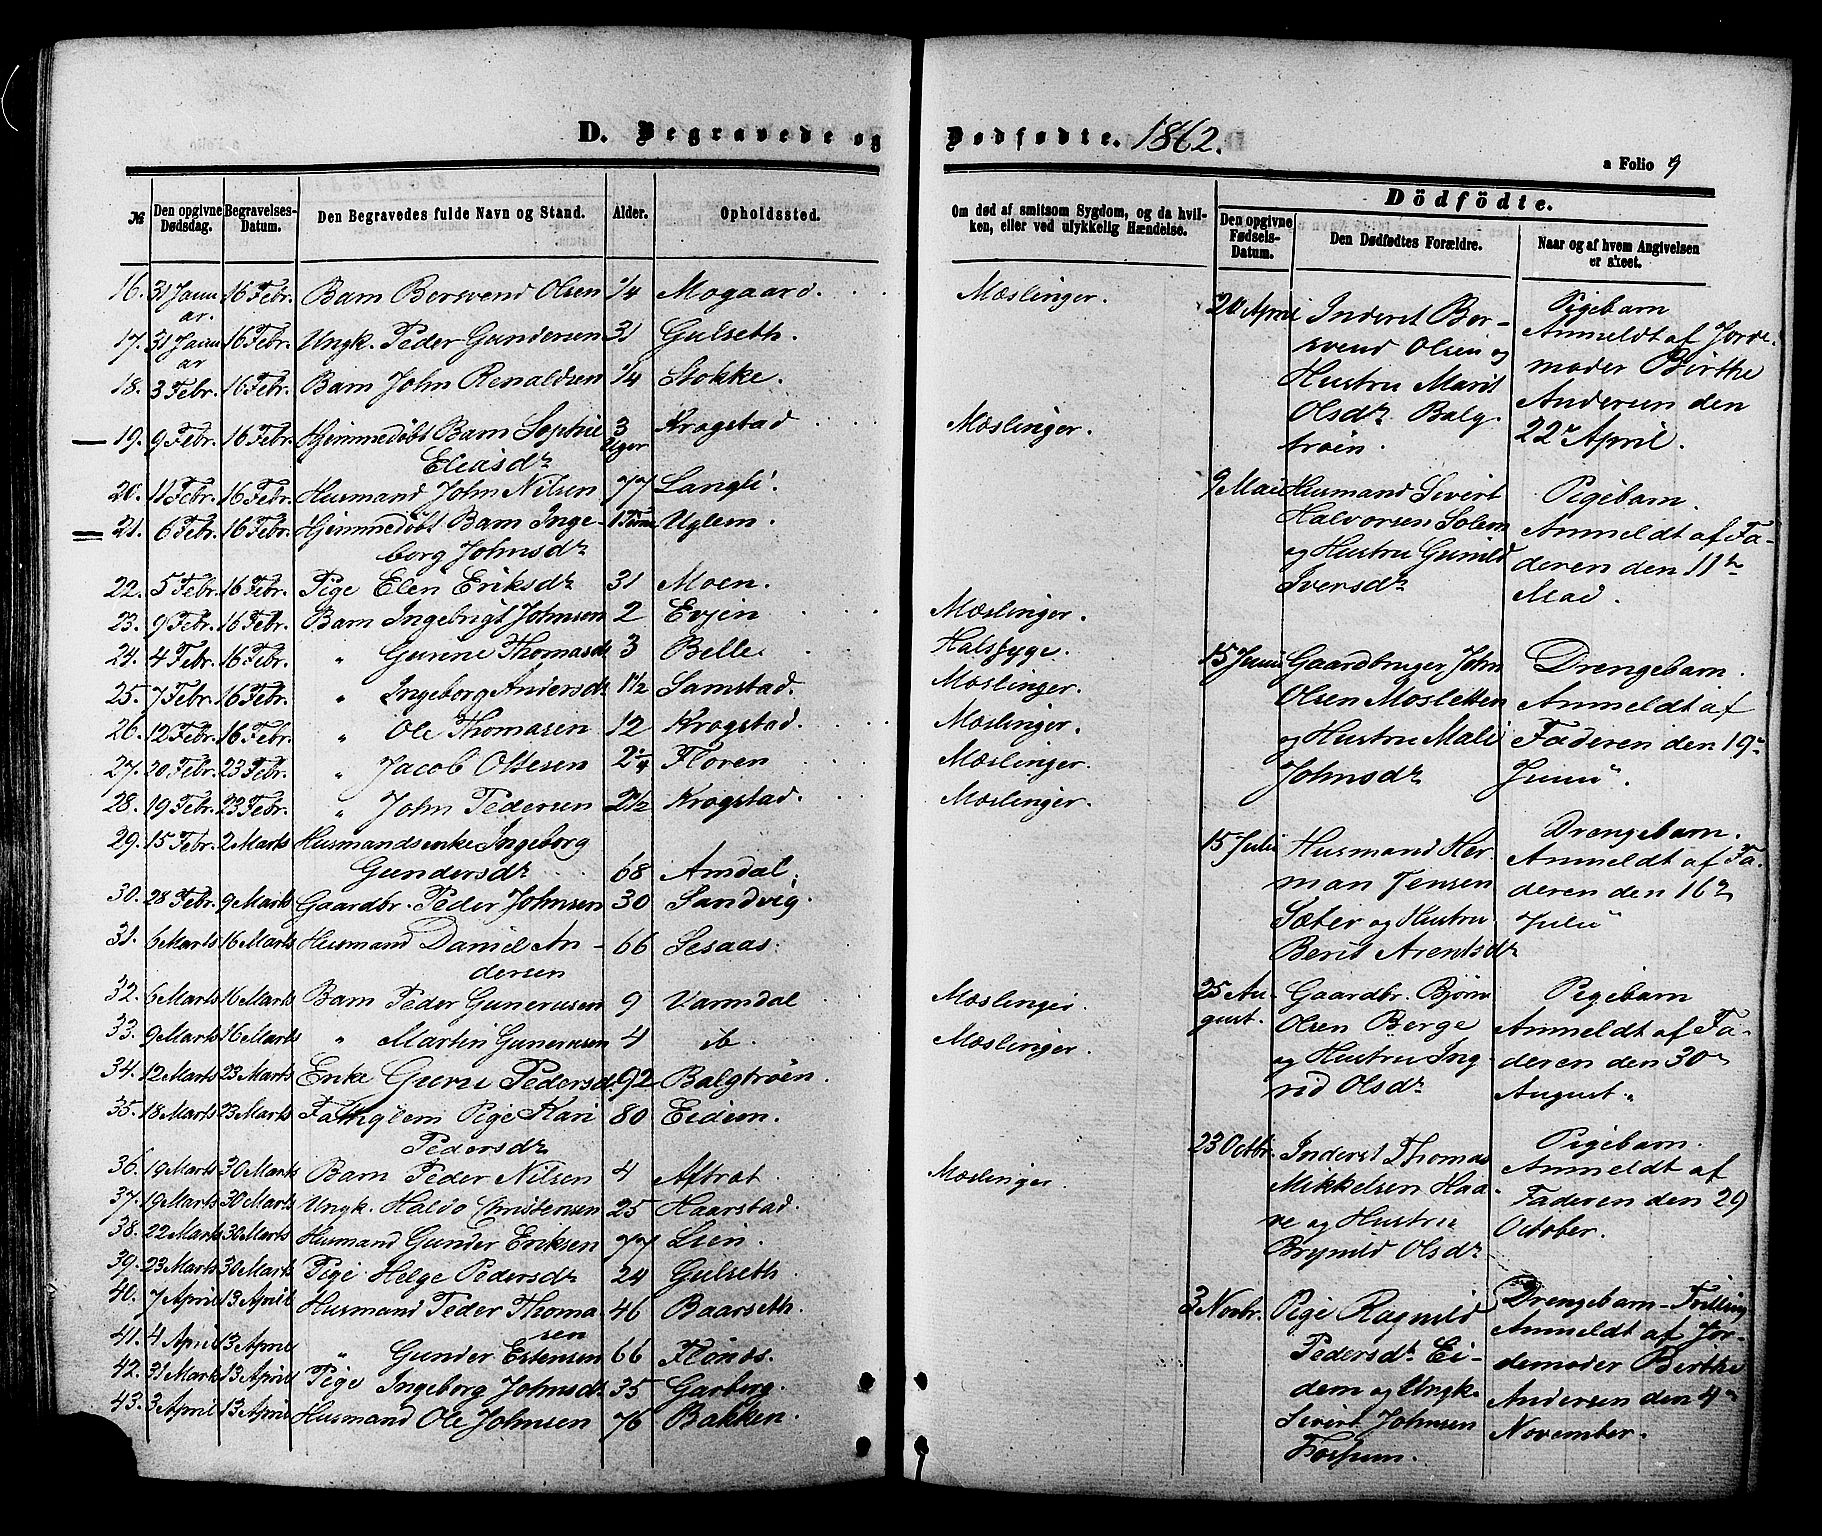 D. Begravede og Dødfødte. 1862.
a Folio 9
№ Den opgivne Dødsdag. Begravelses-Datum. Den Begravedes fulde Navn og Stand. Alder. Opholdssted.
Om død af smitsom Sygdom, og da hvilken, eller ved ulykkelig Hændelse.
Dödfödte.
Den opgivne Fødsels-Datum. Den Dødfødtes Forældre. Naar og af hvem Angivelsen er skeet.
16. 31 Januar. 16 Febr. Barn Bersvend Olsen 1/4 Mogaard. Mæslinger.
17. 31 Januar 16 Febr. Ungk. Peder Gundersen 31 Gulseth.
18. 3 Febr. 16 Febr. Barn John Renaldsen 1/4 Stokke.
19. 9 Febr. 16 Febr. Hjemmedøbt Barn Sophie 3 Uger Krogstad Mæslinger.
Eliasdr
20. 11 Febr. 16 Febr. Husmand John Nilsen 77 Langli.
21. 6 Febr. 16 Febr. Hjemmedøbt Barn Inge- 1 Uglem.
borg Johnsdr
22. 5 Febr. 16 Febr. Pige Elen Eriksdr 31 Moen.
23. 9 Febr. 16 Febr. Barn Ingebrigt Johnsen 2 Evjen Mæslinger.
24. 4 Febr. 16 Febr. " Gurine Thomasdr 3 Belle. Halssyge.
25. 7 Febr. 16 Febr. " Ingeborg Andersdr 1 1/2 Samstad. Mæslinger.
26. 12 Febr. 16 Febr. " Ole Thomasen 12 Krogstad. Mæslinger.
27. 20 Febr. 23 Febr. " Jacob Ottesen 2 1/4 Floren Mæslinger.
28. 19 Febr. 23 Febr. " John Pedersen 2 1/2 Krogstad. Mæslinger.
29. 15 Febr. 2 Marts Husmandsenke Ingeborg
Gundersdr 68 Amdal.
30. 28 Febr. 9 Marts Gaardbr. Peder Johnsen 30 Sandvig.
31. 6 Marts 16 Marts Husmand Daniel An- 66 Sesaas.
dersen
32. 6 Marts 16 Marts Barn Peder Gunerusen 9 Varmdal Mæslinger.
33. 9 Marts 16 Marts " Martin Gunerusen 4 ib. Mæslinger.
34. 12 Marts 23 Marts Enke Guru Pedersd. 92 Balgtrøen.
35. 18 Marts 23 Marts Fattiglem Pige Kari 80 Eidem.
Pedersdr
36. 19 Marts 30 Marts Barn Peder Nilsen 4 Aftret Mæslinger.
37. 19 Marts 30 Marts Ungk. Haldo Christensen 25 Haarstad.
38. 22 Marts 30 Marts Husmand Gunder Eriksen 77 Lien.
39. 23 Marts 30 Marts Pige Helge Pedersdr 24 Gulseth.
40. 7 April 13 April Husmand Peder Thoma 46 Baarseth.
sen
41. 4 April 13 April " Gunder Estensen 66 Flønæs.
42. 31 Marts 13 April Pige Ingeborg Johnsdr 35 Garberg.
43. 3 April 13 April Husmand Ole Johnsen 76 Bakken.
20 April Inderst Ber-
svend Olsen og
Hustru Marit
Olsdr Balg
trøen.
Pigebarn
Anmeldt af Jorde-
moder Birthe
Andersen den
22de April.
9 Mai Husmand Sivert
Halvorsen Solem
og Hustru Gunild
Iversdr
Pigebarn.
Anmeldt af Fa-
deren den 11te
Mai.
15 Juni Gaardbruger John
Olsen Mosletten
og Hustru Mali
Johnsdr
Drengebarn.
Anmeldt af
Faderen den 19de
Juni.
15 Juli Husmand Her
man Jensen
Sæter og Hustru
Berit Arentsdr
Drengebarn.
Anmeldt af Fa-
deren den 16de
Juli
25 Au-
gust. Gaardbr. Bjørn
Olsen Berge
og Hustru Ing
rid Olsdr
Pigebarn
Anmeldt af Fa-
deren den 30de
August.
23 Octbr. Inderst Thomas
Mikkelsen Haa-
re og Hustru
Brynild Olsdr
Pigebarn.
Anmeldt af
Faderen den 29
October.
3 Novbr. Pige Ragnild
Pedersdr Ei-
dem og Ungk.
Sivert Johnsen
Fossum.
Drengebarn - Tvilling
Anmeldt af Jor-
demoder Birthe
Andersen den 4de
November.